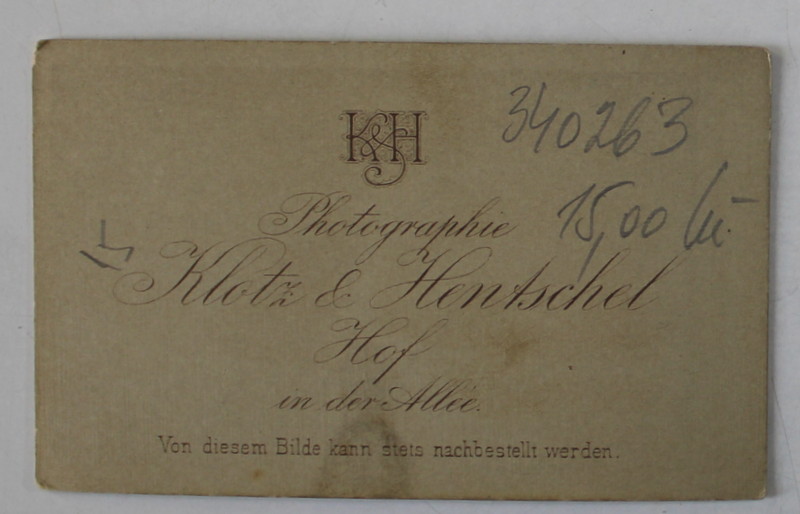 K&H
340263
Photographie
15,00
Klotz & Hentschel
Hof
in der Allée.
Von diesem Bilde kann stets nachbestellt werden.